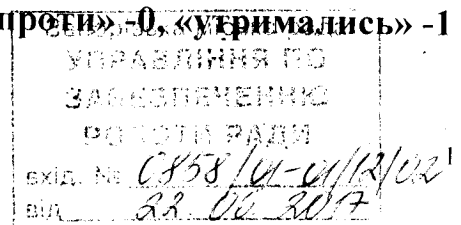 проти» -0, «утримались» -1
УПРАВЛІННЯ ПО
ЗАБЕЗПЕЧЕННЮ
РОБОТИ РАДИ
вхід. № 0858/01-01/12/02
від 22 06 2017